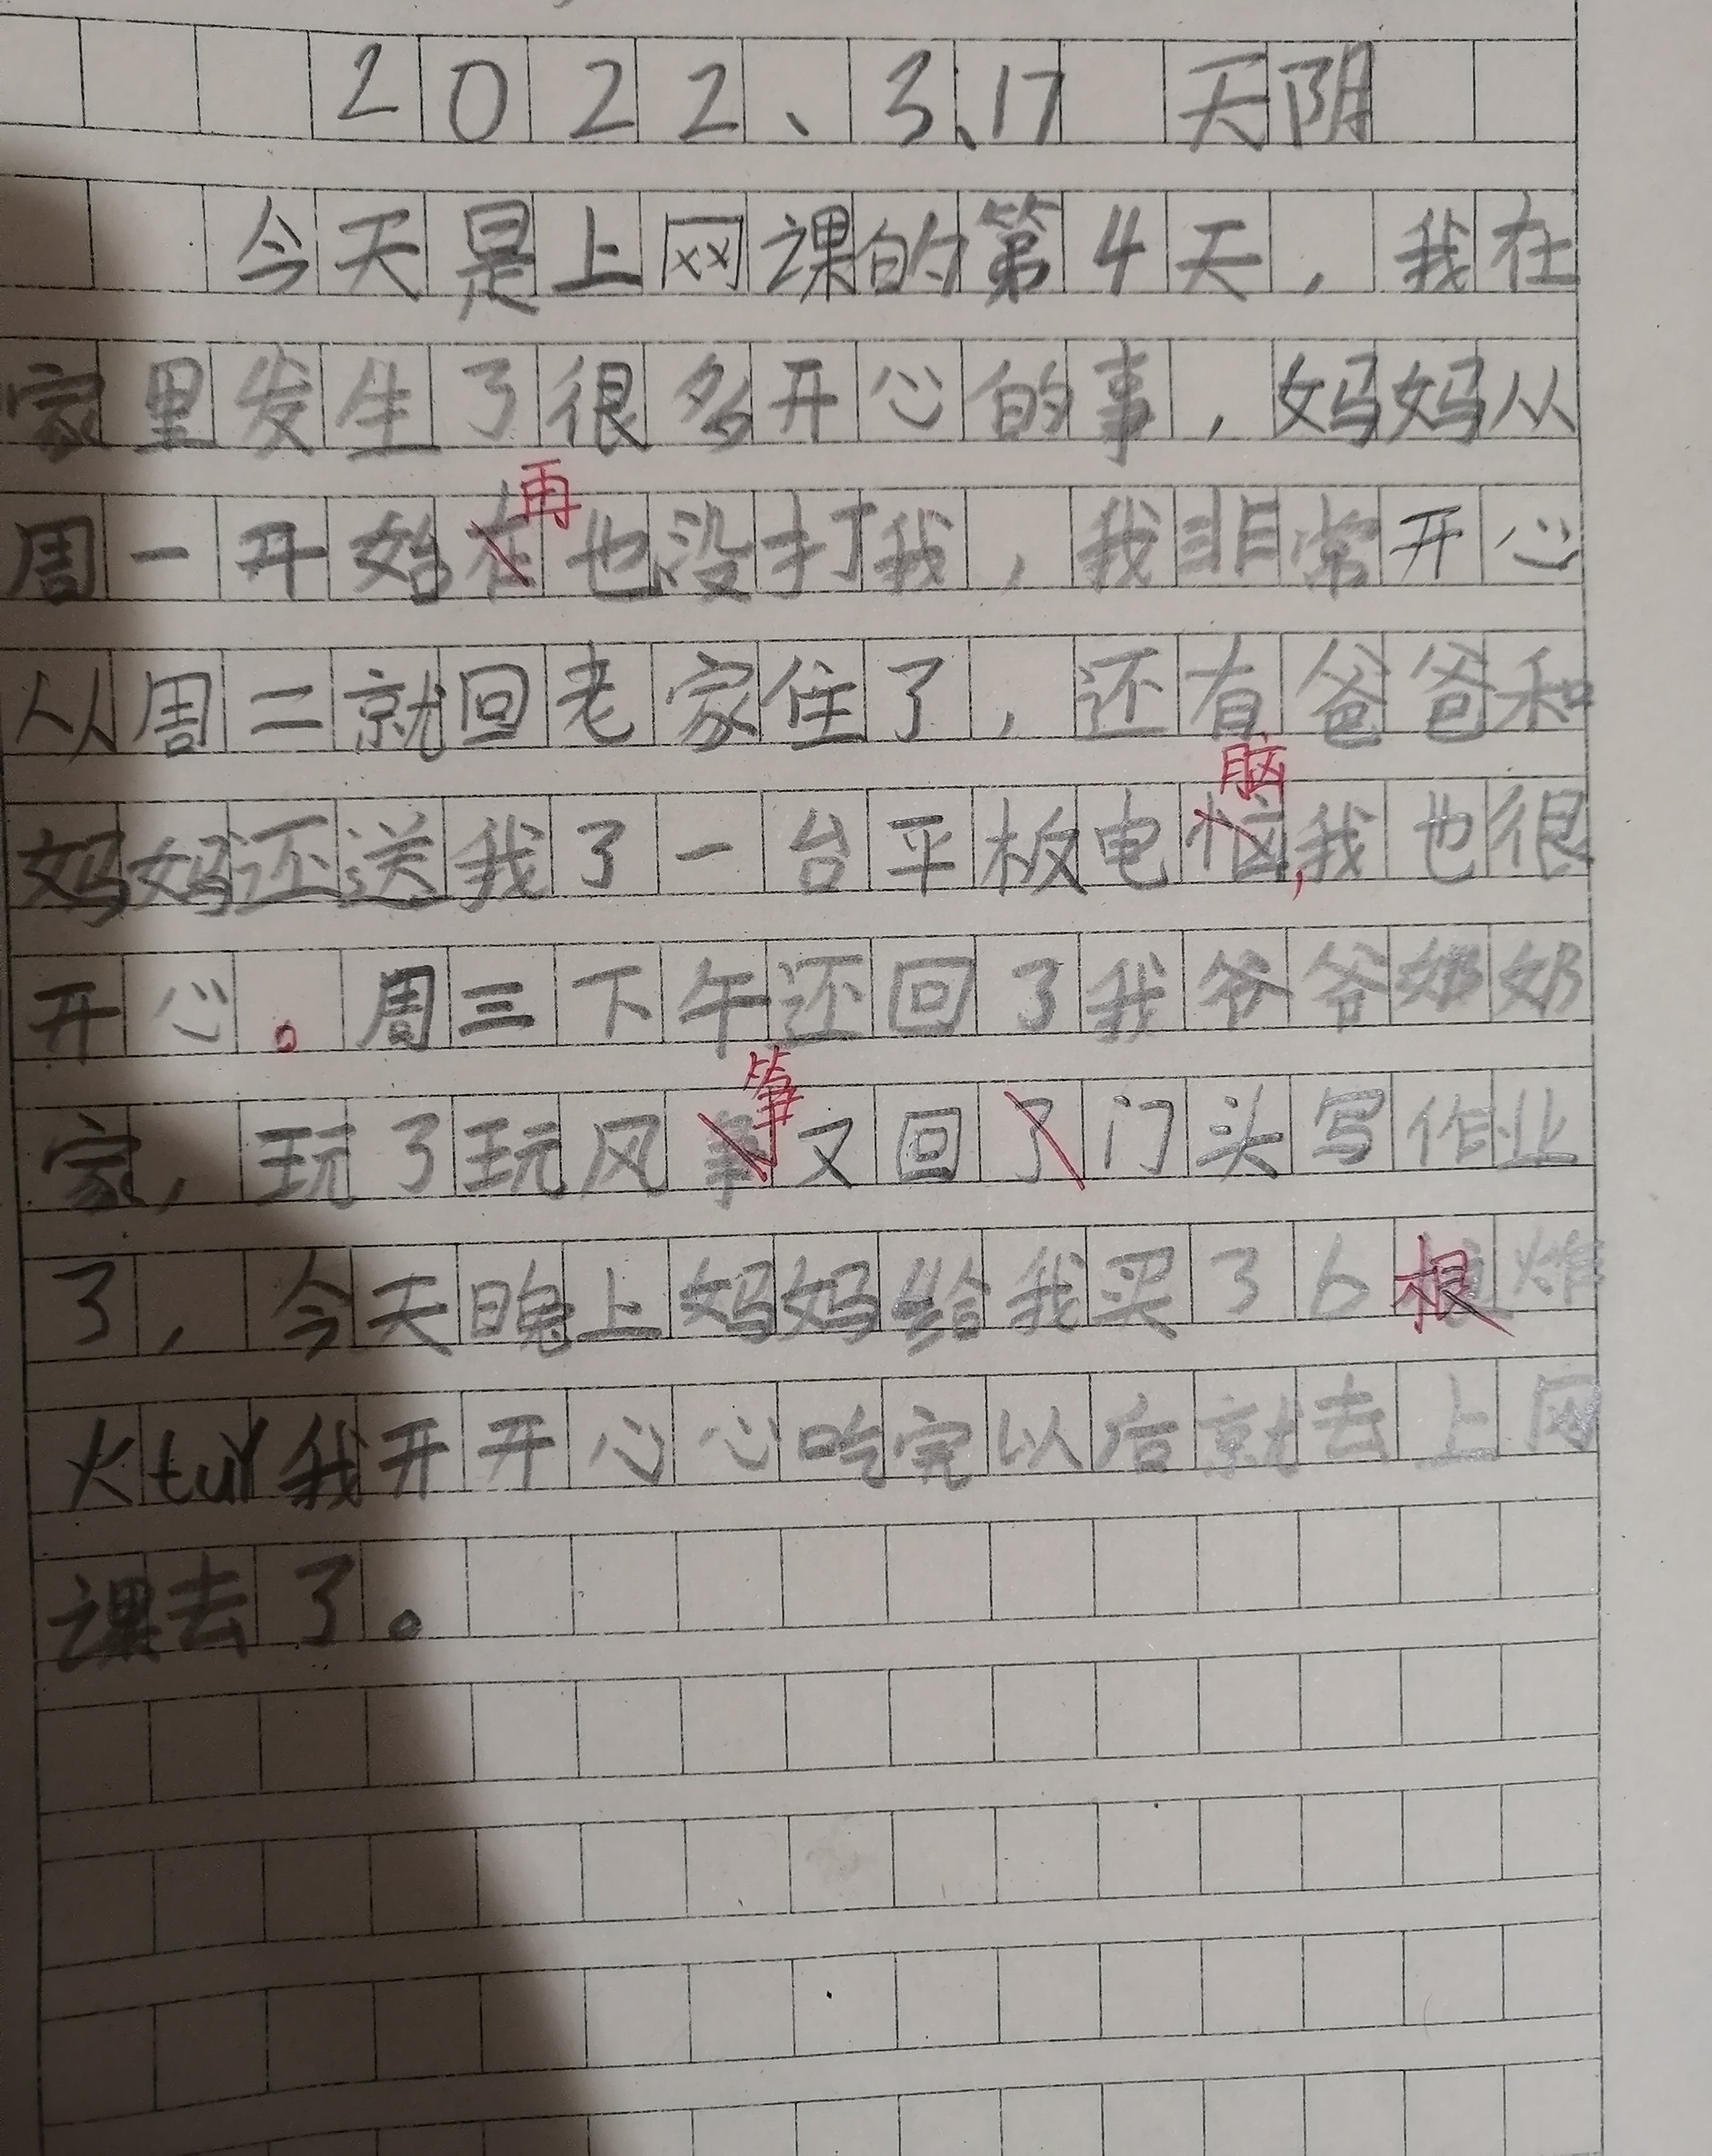 2022、3、17 天阴
今天是上网课的第4天，我在
家里发生了很多开心的事，妈妈从
再
周一开始在也没打我，我非常开心
从周二就回老家住了，还有爸爸和
脑
妈妈还送我了一台平板电恼,我也很
开心。周三下午还回了我爷爷奶奶
筝
家，玩了玩风事又回了门头写作业
了，今天晚上妈妈给我买了6根炸
火tuǐ我开开心心吃完以后就去上网
课去了。